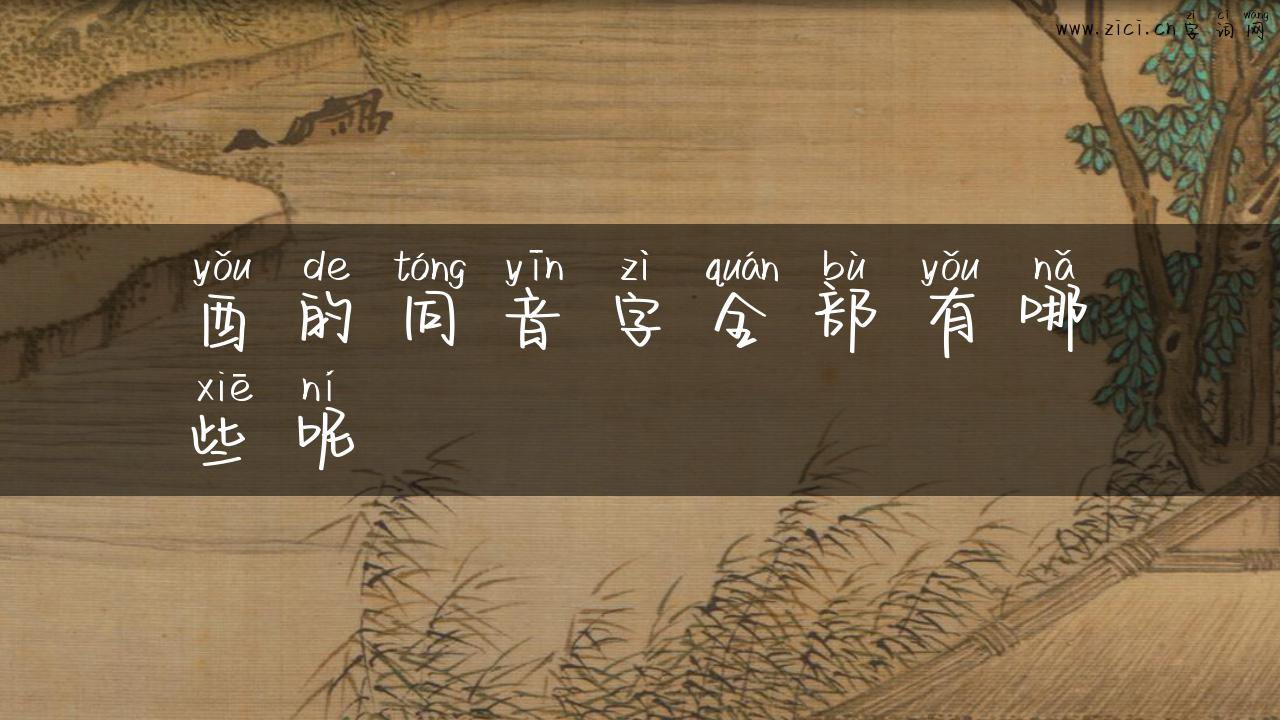 zì cí wǎng
www.zici.cn字词网
yǒu de tóng yīn zì quán bù yǒu nǎ
酉的同音字全部有哪
xiē ní
些呢